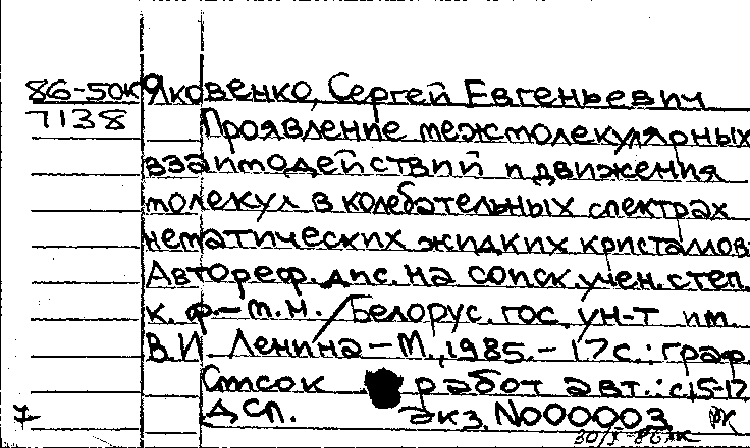 86-50к Яковенко, Сергей Евгеньевич
7138 Проявление межмолекулярных
взаимодействий и движения
молекул в колебательных спектрах
нематических жидких кристалов.
Автореф. дис. на соиск. учен. степ.
к. ф.-м.н. / Белорус. гос. ун-т им.
В.И. Ленина - М., 1985. - 17 с.: граф.
Список работ авт.: с.15-17
Дсп. экз. N000003